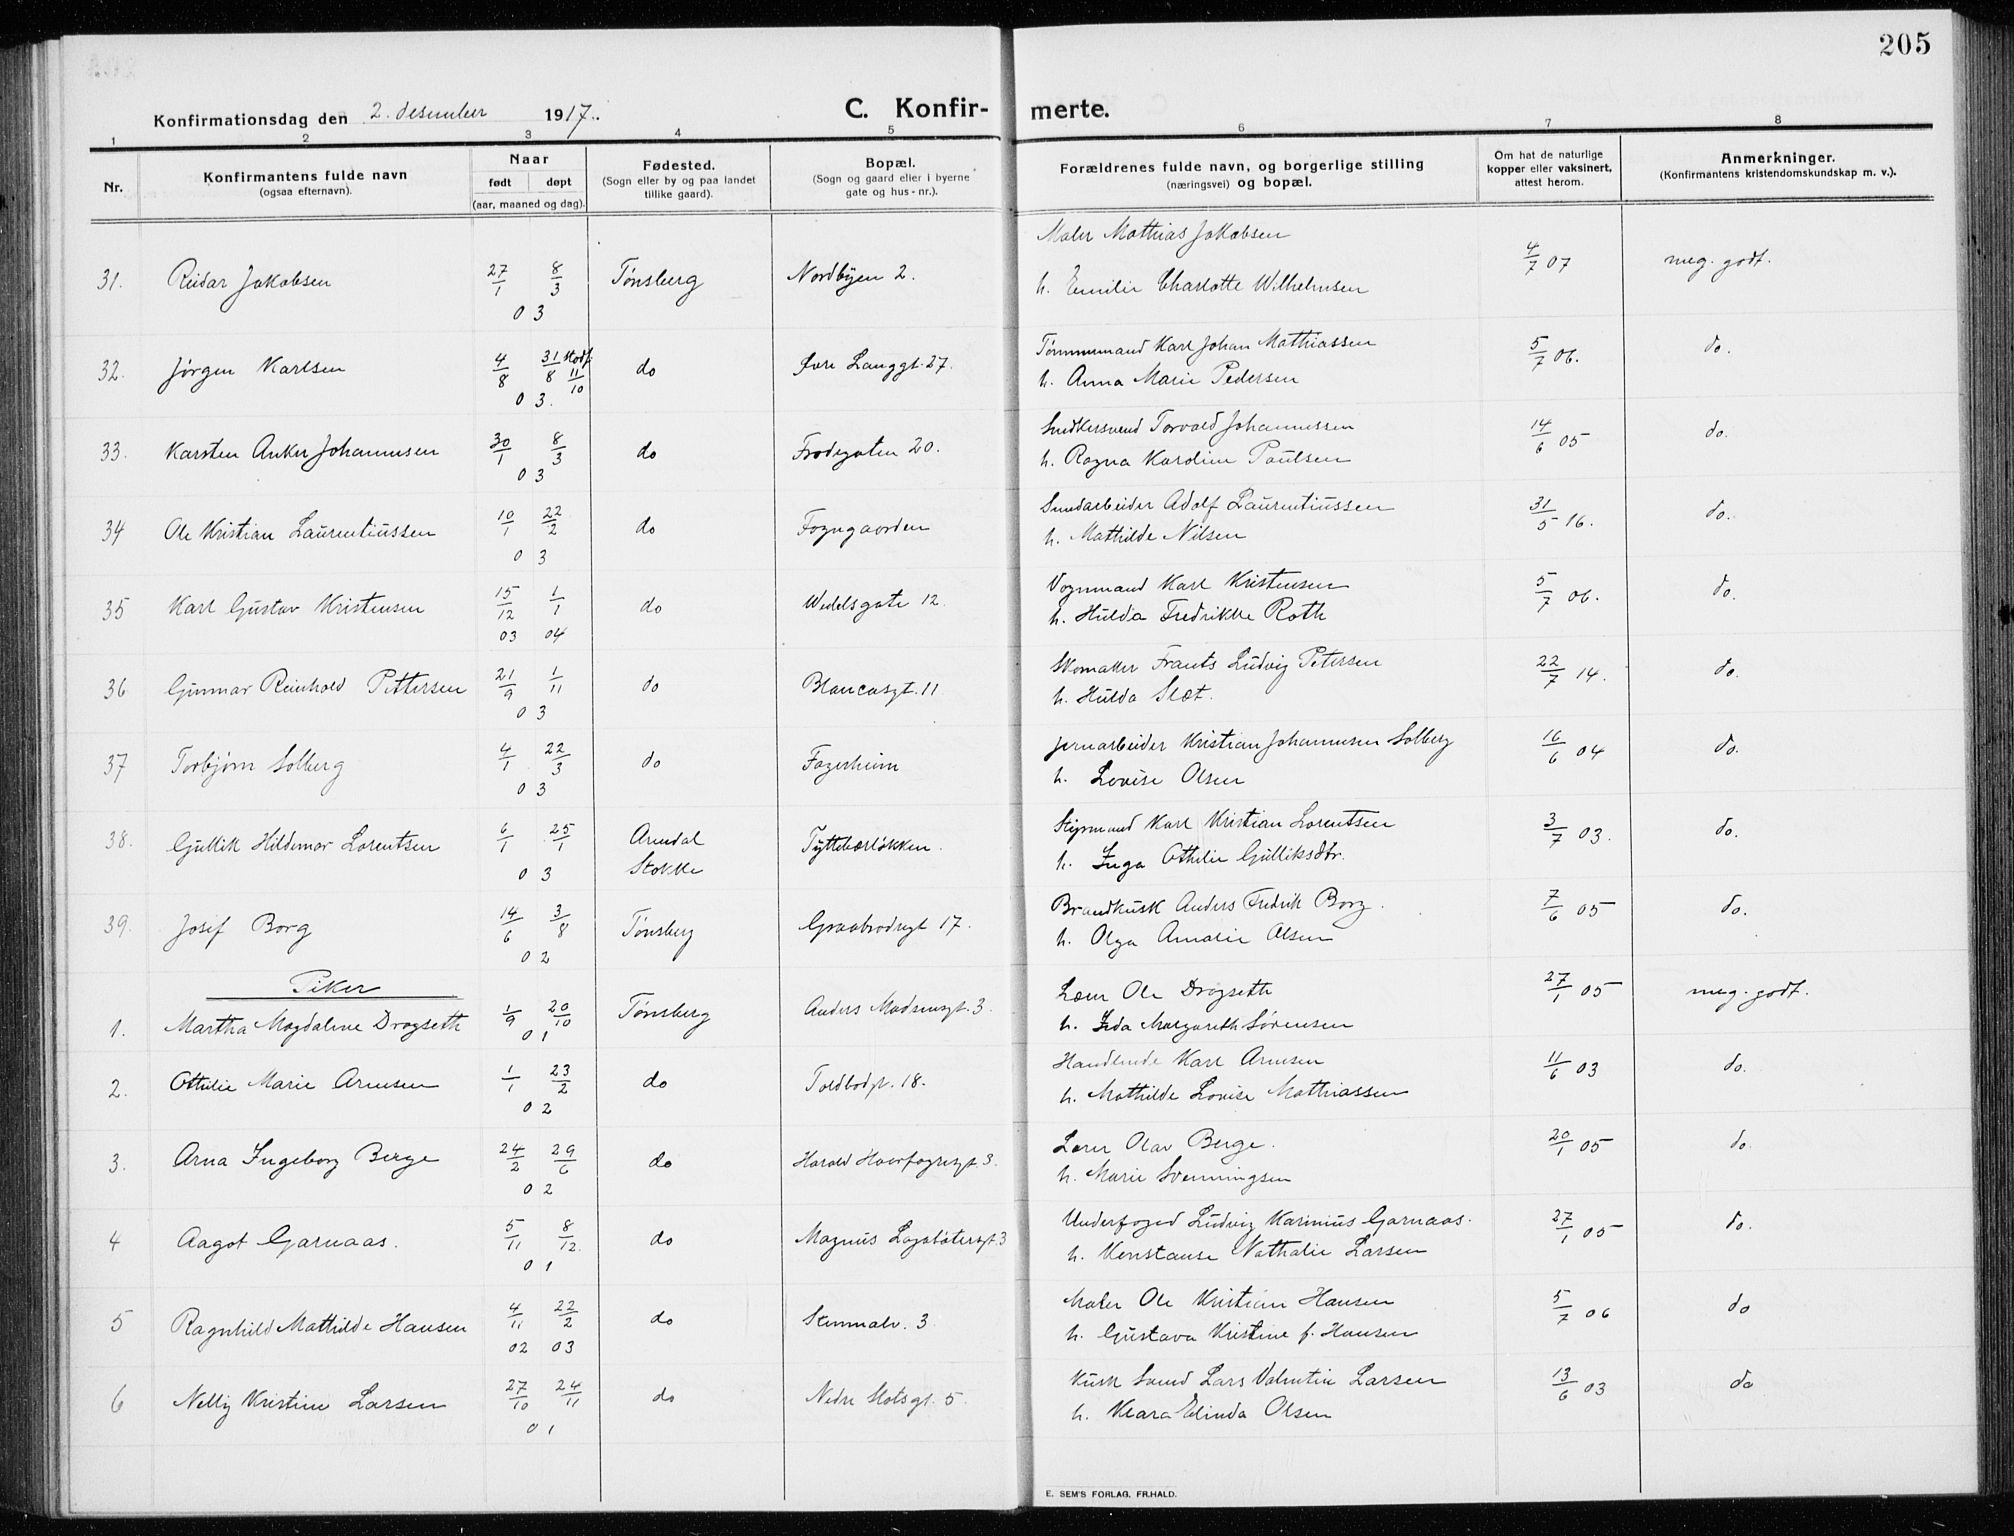 205
Konfirmationsdag den 2. desember 1917.
C. Konfir- merte.
1 2 3 4 5 6 7 8
Nr.
Konfirmantens fulde navn
(ogsaa efternavn).
Naar
født døpt
(aar, maaned og dag).
Fødested.
(Sogn eller by og paa landet
tillike gaard).
Bopæl.
(Sogn og gaard eller i byerne
gate og hus-nr.).
Forældrenes fulde navn, og borgerlige stilling
(næringsvei) og bopæl.
Om hat de naturlige
kopper eller vaksinert,
attest herom.
Anmerkninger.
(Konfirmantens kristendomskundskap m. v.).
Maler Mathias Jakobsen
31. Reidar Jakobsen 27/1 8/3 Tønsberg Nordbyen 2. h. Emilie Charlotte Wilhelmsen 4/7 07 meg. godt.
03
Tømmermand Karl Johan Mathiassen
32. Jørgen Karlsen 4/8 31/8 stadf. 11/10 do Øvre Langgt. 27. h. Anna Marie Pedersen 5/7 06. do.
03.
Snedkersvend Torvald Johannessen
33. Karsten Anker Johannesen 30/1 8/3 do Frodegaten 20. h. Ragna Karoline Paulsen 14/6 05 do.
03
Sundarbeider Adolf Laurentiussen
34 Ole Kristian Laurentiussen 10/1 22/2 do Fogngaarden h. Mathilde Nilsen 31/5 16. do.
03
Vognmand Karl Kristensen
35 Karl Gustav Kristensen 15/12 1/1 do Wedelsgate 12. h. Hulda Fredrikke Roth 5/7 06. do.
03 04
Skomaker Frants Ludvig Petersen
36 Gunnar Reinhold Pettersen 21/9 1/11 do Blancasgt. 11 h. Hulda Slæt. 22/7 14. do.
03
Jernarbeider Kristian Johannesen Solberg
37 Torbjørn Solberg 4/1 22/3 do Fagerheim h. Lovise Olsen 16/6 04 do.
03
Styrmand Karl Kristian Lorentsen
38. Gullik Hildemar Lorentsen 6/1 25/1 Arendal Tyttebærløkken. h. Inga Othilie Gulliksdtr. 3/7 03. do.
03 Stokke
Brandkusk Anders Fredrik Borg.
39. Josef Borg 14/6 3/8 Tønsberg Graabrødregt 17. h. Olga Amalie Olsen 7/6 05 do.
02
Piker
Lærer Ole Dragseth
1. Martha Magdalene Dragseth 1/9 20/10 Tønsberg Anders Madsensgt. 3. h. Ida Margareth Sørensen 27/1 05 meg. godt.
01
Handlende Karl Arnesen
2. Othilie Marie Arnesen 1/1 23/2 do Toldbodgt. 18. h. Mathilde Lovise Mathiassen 11/6 03 do.
02
Lærer Olav Berge.
3. Arna Ingeborg Berge 24/2 29/6 do Harald Haarfagresgt. 3. h. Marie Svenningsen 20/1 05 do.
02
Underfoged Ludvig Karinius Garnaas.
4 Aagot Garnaas. 5/11 8/12. do Magnus Lagabøtersgt. 3 h. Konstanse Nathalie Larsen 27/1 05 do.
01
Maler Ole Kristian Hansen
5 Ragnhild Mathilde Hansen 4/11 22/2 do Stenmalv. 3. h. Gustava Kristine f. Hansen 5/7 06 do
02 03
Kusk Svend Lars Valentin Larsen
6 Nelly Kristine Larsen 27/10 24/11 do Nedre Slotsgt. 5. h. Klara Elinda Olsen 13/6 03 do
01
E. SEM'S FORLAG, FR.HALD.